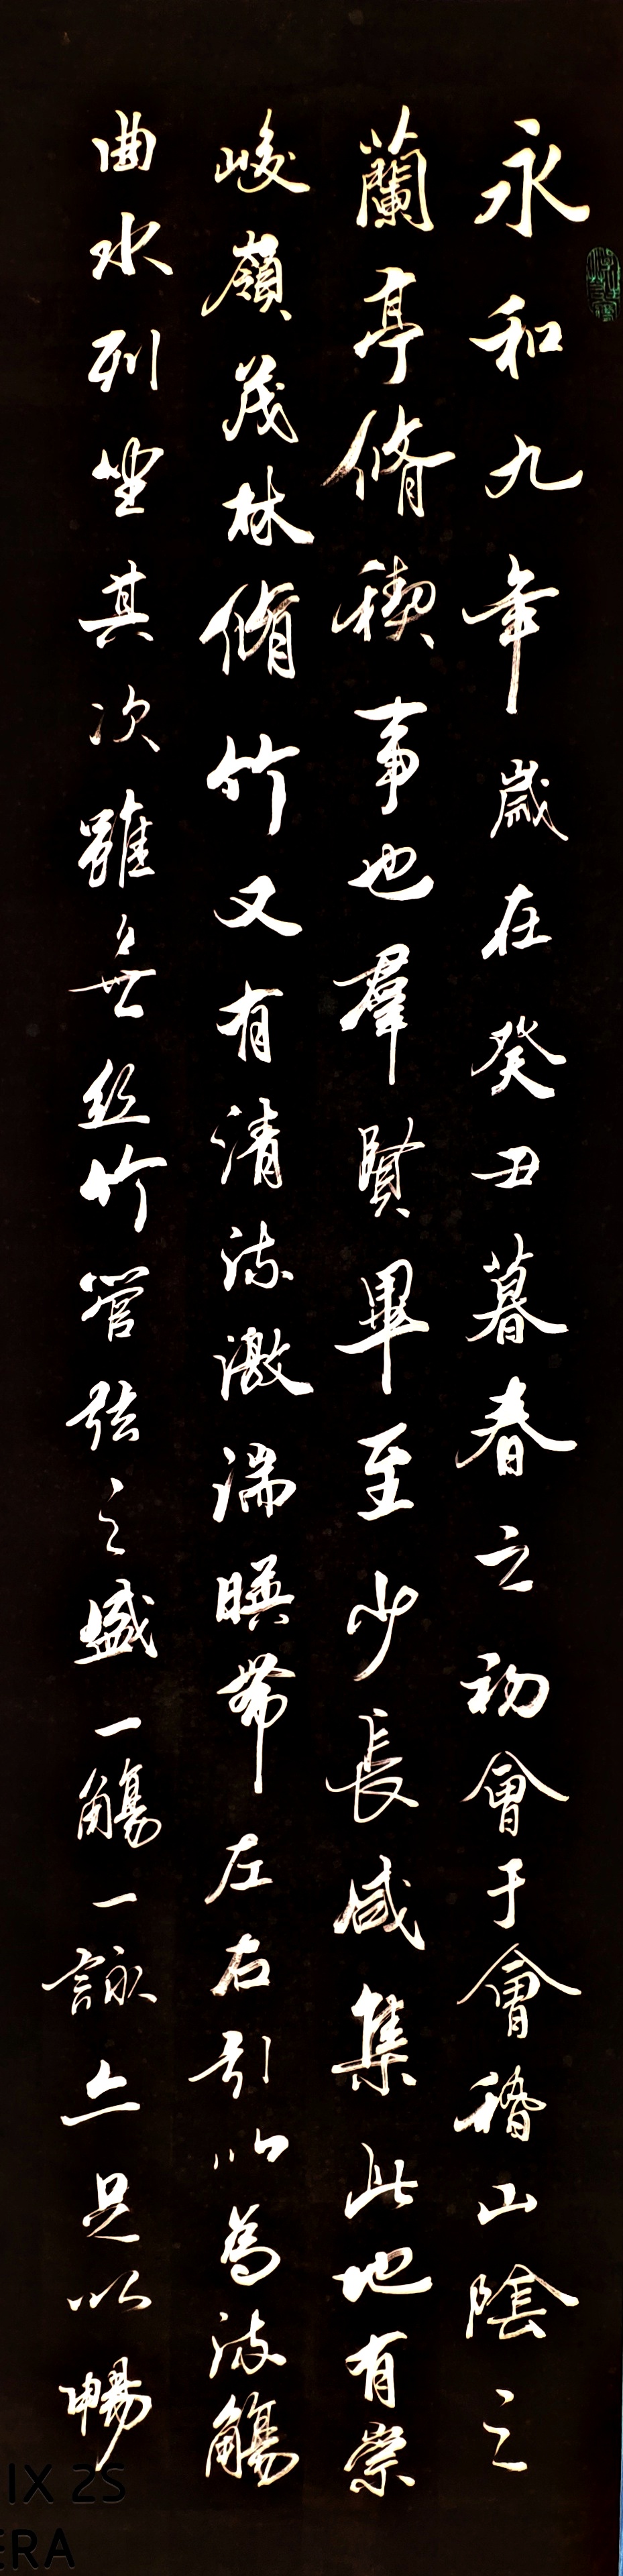 永和九年歲在癸丑暮春之初會于會稽山陰之
蘭亭脩稧事也羣賢畢至少長咸集此地有崇
峻嶺茂林脩竹又有清流激湍暎帶左右引以為流觴
曲水列坐其次雖無絲竹管弦之盛一觴一詠亦足以暢
IX 2S
ERA